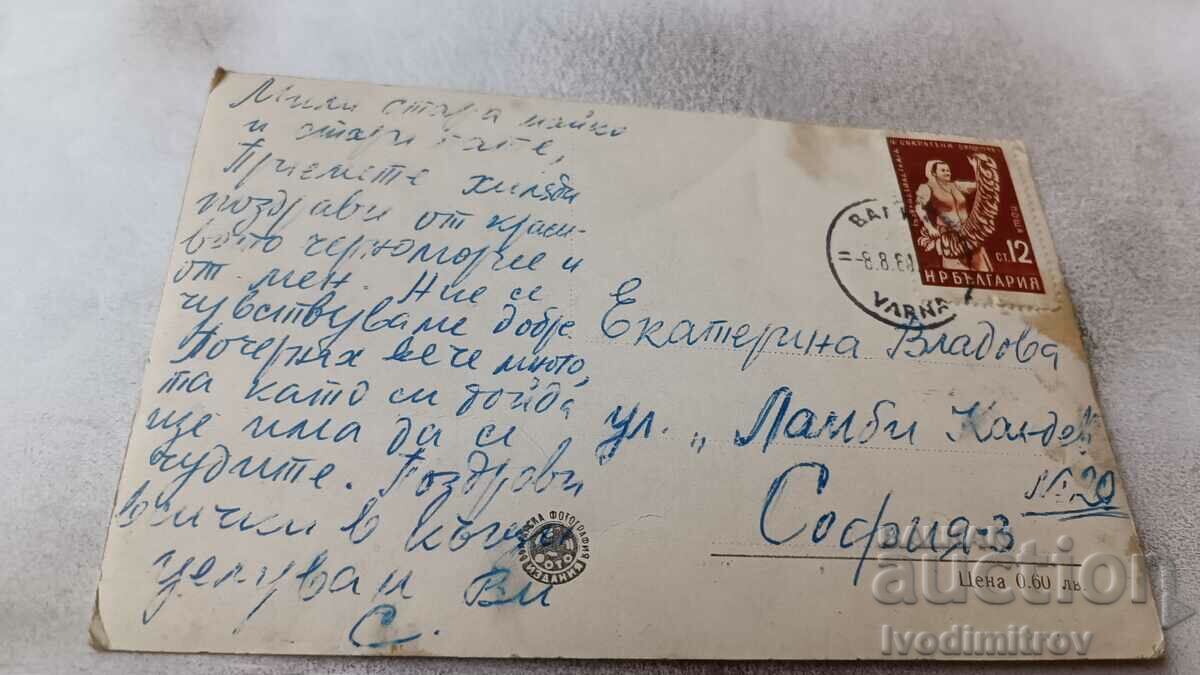 Мили стара майко
и стари тате,
Приемете хиляди
поздрави от краси-
вото черноморие и
от мен. Ние се
чувствуваме добре
Почернях вече много,
та като си дойда
ще има да се
чудите. Поздрави
всички в къщи
целувам Ви
С.
Екатерина Владова
ул. „Ламби
№ 20
София
Цена 0.60 лв.
ФОТОГРАФИЯ
ФОТО
ИЗДАНИЯ
СТ. 12
НР БЪЛГАРИЯ
8.8.6
VARNA
BALKAN
auction
Ivodimitrov